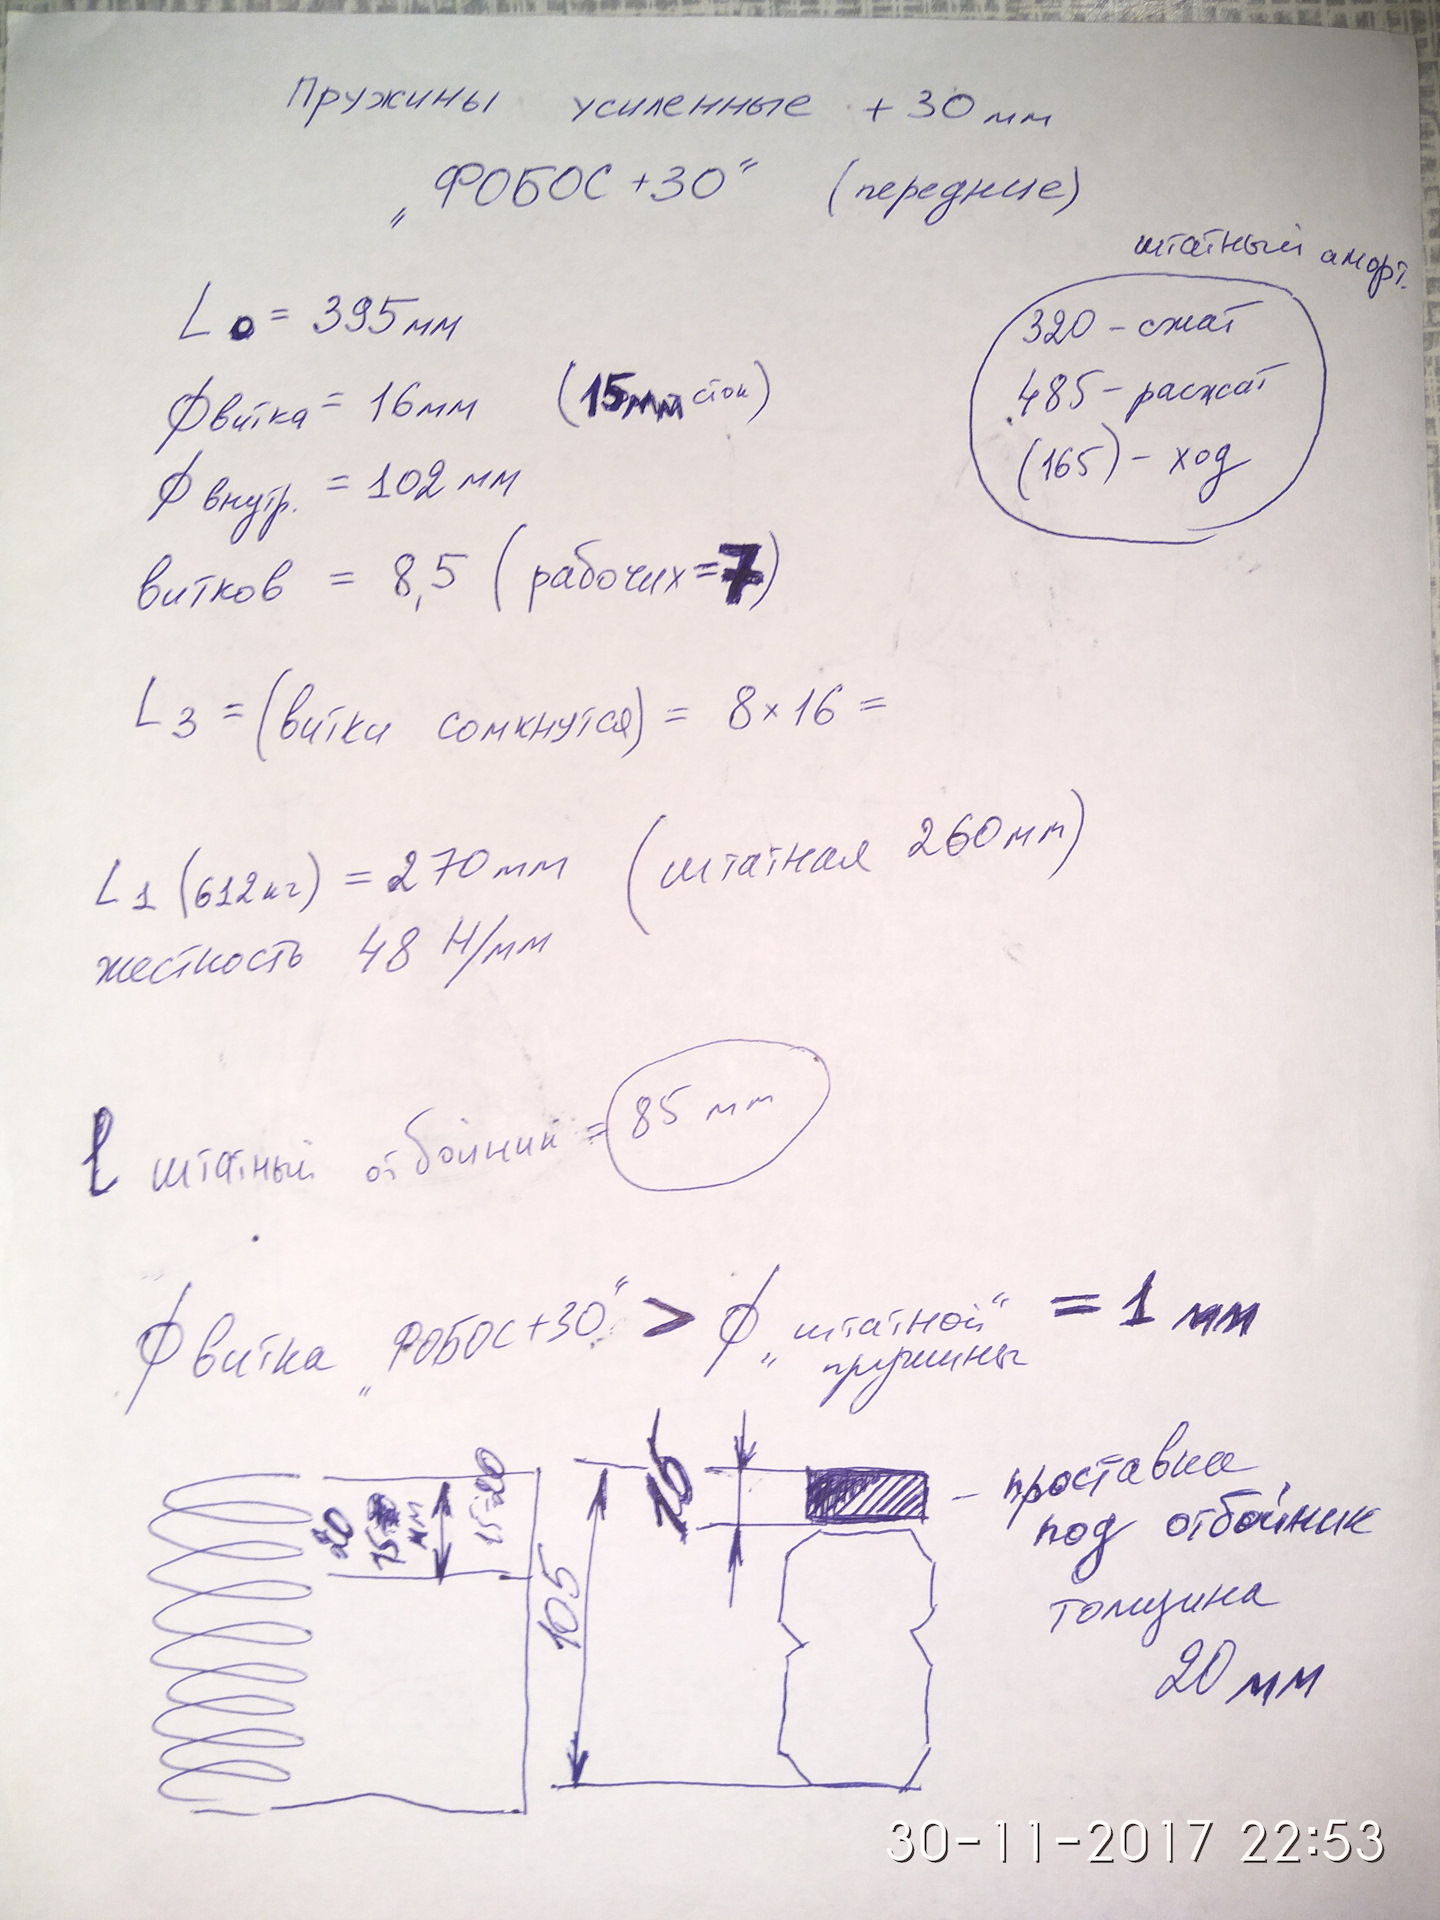 Пружины усиленные +30мм
„ФОБОС+30" (передние)
штатный аморт.
320 - сжат
485 - расжат
(165) - ход
L0 = 395мм
ϕ витка = 16мм (15мм сток)
ϕ внутр. = 102мм
витков = 8,5 (рабочих=7)
L3 = (витки сомкнутся) = 8×16 =
L1 (612кг) = 270мм (штатная 260мм)
жесткость 48 Н/мм
l штатный отбойник = 85 мм
ϕ витка „ФОБОС+30" > ϕ „штатной" пружины = 1 мм
20
мм
15-20
105
- проставка
под отбойник
толщина
20 мм
30-11-2017 22:53